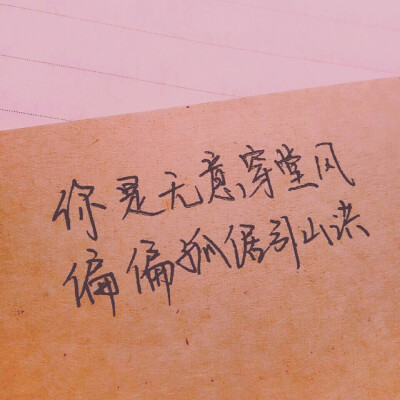 你是无意穿堂风
偏偏孤倨引山洪